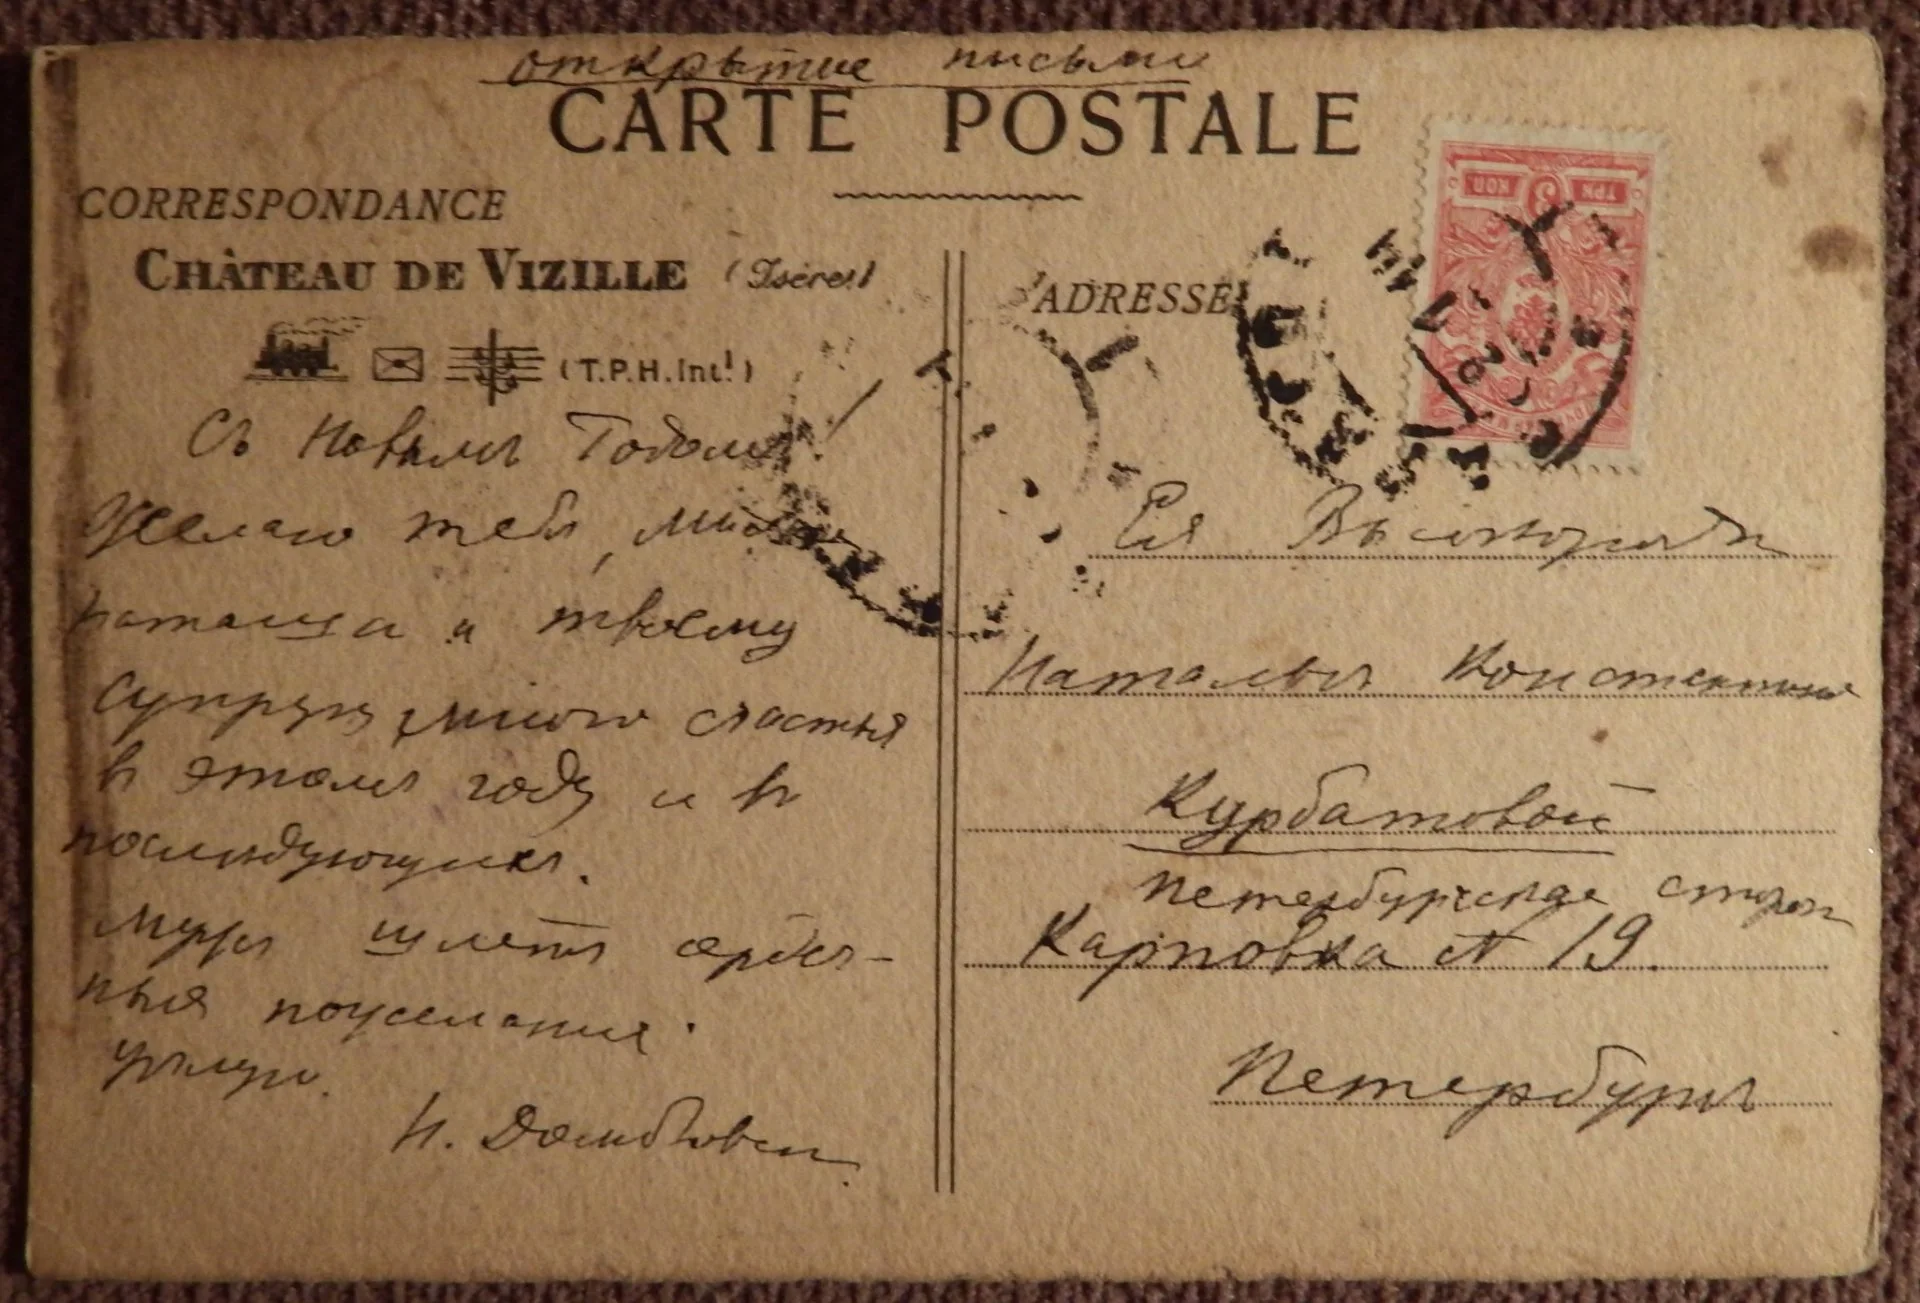 открытое письмо
CARTE POSTALE
CORRESPONDANCE
CHÂTEAU DE VIZILLE (Isère)
(T.P.H. Intl.)
Съ Новымъ Годомъ!
Желаю тебѣ,
Наташа и твоему
супругу много счастья
в этомъ году и в
последующихъ.
Мура шлетъ сердеч-
ныя пожеланія.
Н. Домбровск
ADRESSE
ТРИ 3 КОП
Ея Высокород
Натальѣ Константиновнѣ
Курбатовой
Петербургская сторон
Карповка № 19.
Петербургъ